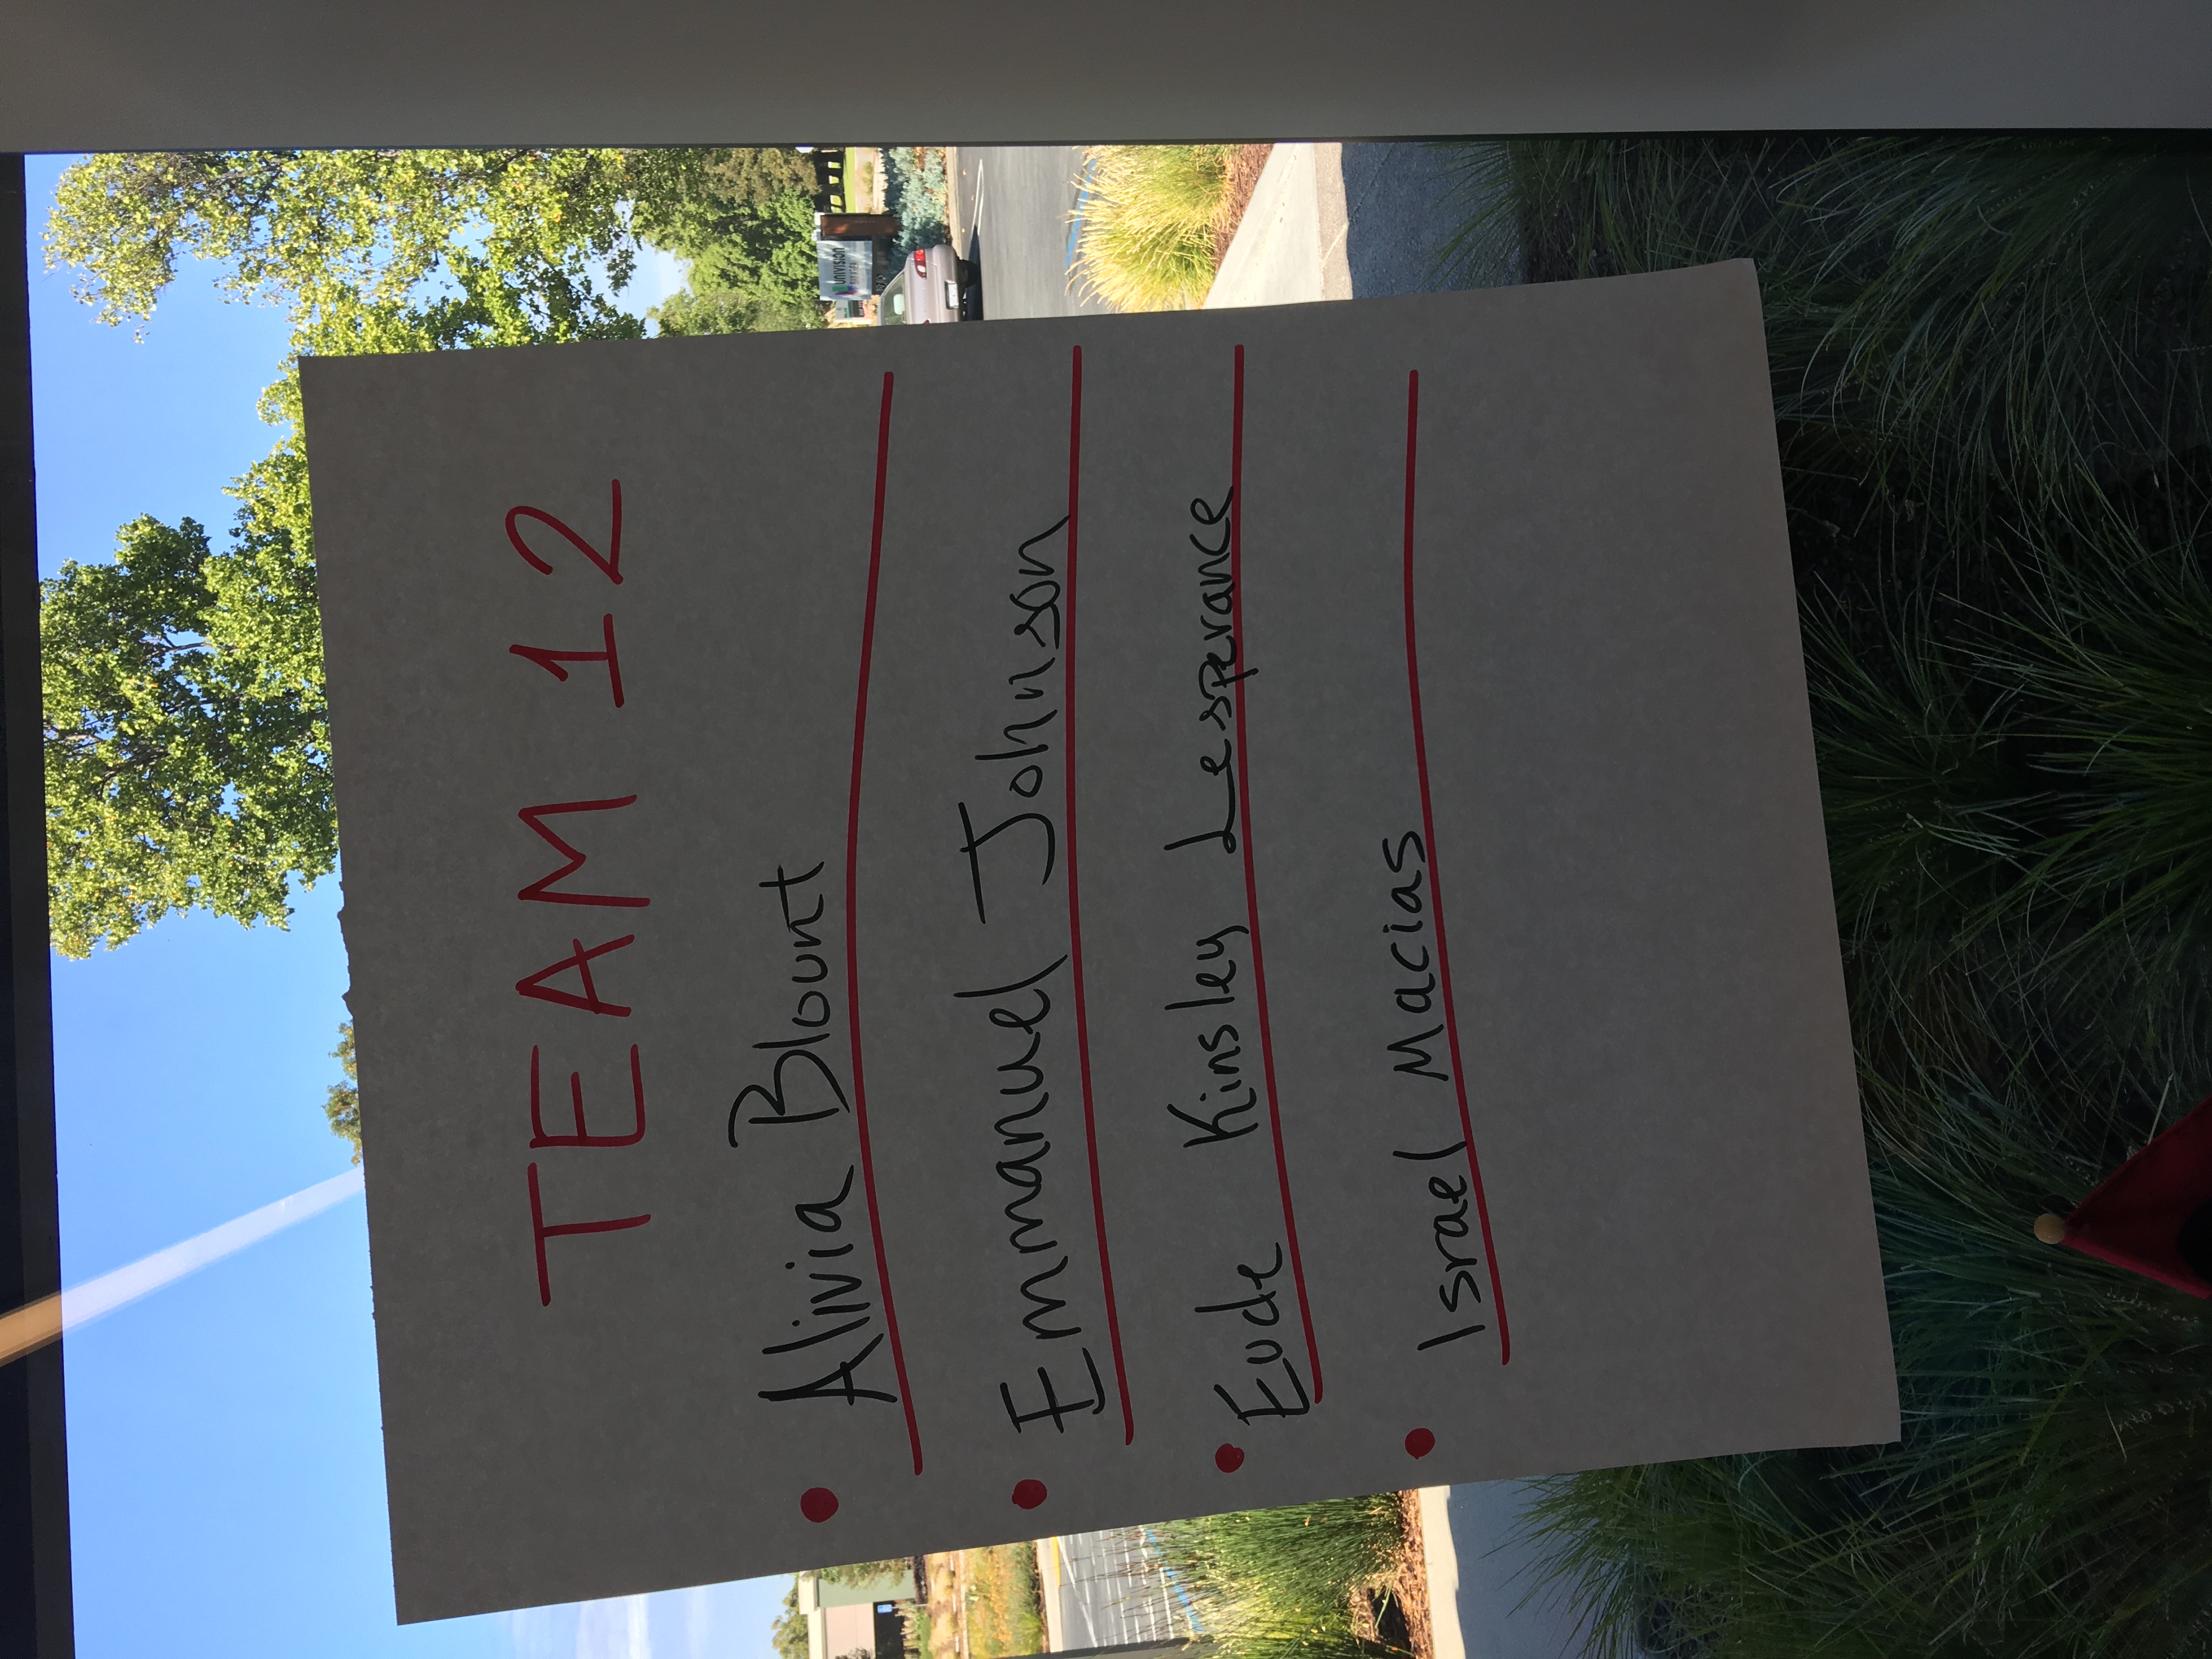 TEAM 12
• Alivia Blount
• Emmanuel Johnson
• Eude Kinsley Lesperance
• Israel Macias
UNIVISION